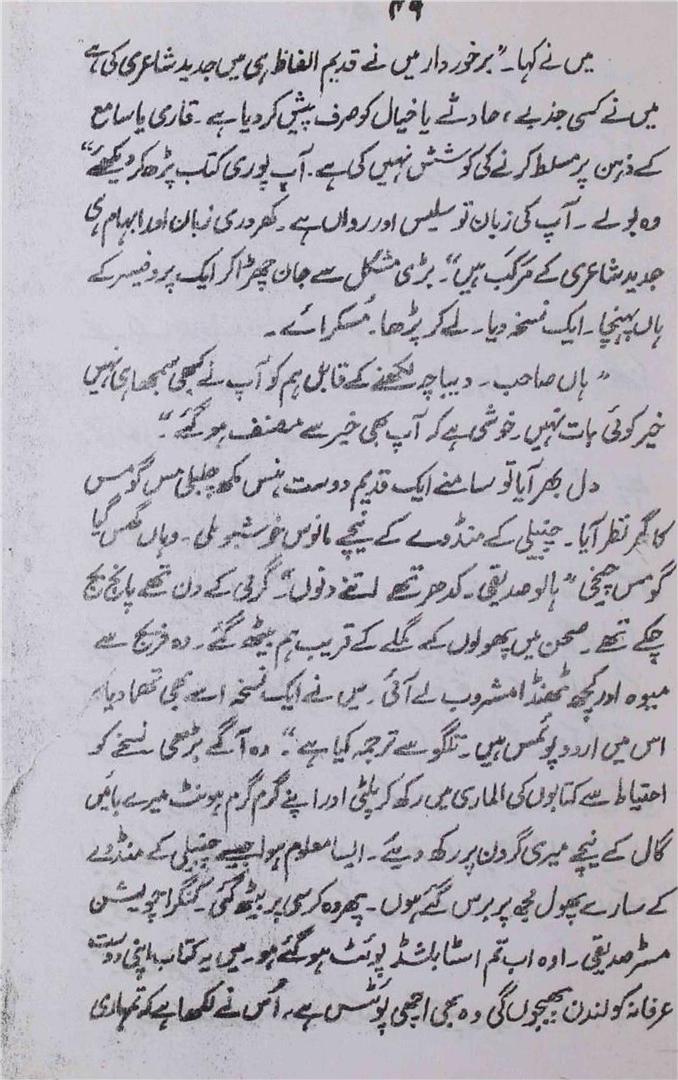 ۴۹
میں نے کہا۔ ”برخوردار میں نے قدیم الفاظ ہی میں جدید شاعری کی ہے
میں نے کسی جذبے، حادثے یا خیال کو صرف پیش کر دیا ہے۔ قاری یا سامع
کے ذہن پر مسلط کرنے کی کوشش نہیں کی ہے۔ آپ پوری کتاب پڑھ کر دیکھئے“
وہ بولے۔ آپ کی زبان تو سلیس اور رواں ہے۔ کھردری زبان اور ابہام ہی
جدید شاعری کے مرکب ہیں“۔ بڑی مشکل سے جان چھڑا کر ایک پروفیسر کے
ہاں پہنچا۔ ایک نسخہ دیا۔ لے کر پڑھا۔ مُسکرائے۔
”ہاں صاحب۔ دیباچہ لکھنے کے قابل ہم کو آپ نے کبھی سمجھا ہی نہیں
خیر کوئی بات نہیں۔ خوشی ہے کہ آپ بھی خیر سے مصنف ہو گئے“۔
دل بھر آیا تو سامنے ایک قدیم دوست ہنس مکھ چلبلی مس گومس
کا گھر نظر آیا۔ چنبیلی کے منڈوے کے نیچے مانوس خوشبو ملی۔ وہاں گھس گیا
گومس چیخی ”ہالو صدیقی۔ کدھر تھے اتنے دنوں“۔ گرمی کے دن تھے پانچ بج
چکے تھے۔ صحن میں پھولوں کے گملے کے قریب ہم بیٹھ گئے۔ وہ فریج سے
میوہ اور کچھ ٹھنڈا مشروب لے آئی۔ میں نے ایک نسخہ اسے بھی تھما دیا۔
اس میں اردو پوئمس ہیں۔ تلگو سے ترجمہ کیا ہے“۔ وہ آگے بڑھی۔ نسخے کو
احتیاط سے کتابوں کی الماری میں رکھ کر پلٹی اور اپنے گرم گرم ہونٹ میرے بائیں
گال کے نیچے میری گردن پر رکھ دیئے۔ ایسا معلوم ہوا جیسے چنبیلی کے منڈوے
کے سارے پھول مجھ پر برس گئے ہوں۔ پھر وہ کرسی پر بیٹھ گئی۔ کنگراچولیشن
مسٹر صدیقی۔ اوہ اب تم اسٹابلشڈ پوئٹ ہو گئے ہو۔ میں یہ کتاب اپنی دوست
عرفانہ کو لندن بھیجوں گی وہ بھی اچھی پوئٹس ہے۔ اُس نے لکھا ہے کہ تمہاری